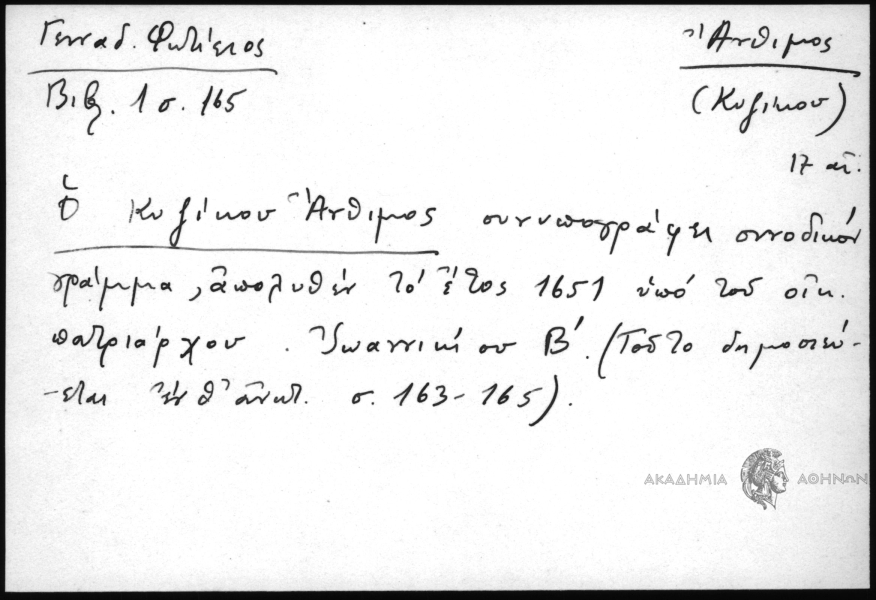 Γενναδ. Φωτίειος
Βιβλ. 1 σ. 165
Ἄνθιμος
(Κυζίκου)
17 αἰ.
Ὁ Κυζίκου Ἄνθιμος συνυπογράφει συνοδικόν
γράμμα, ἀπολυθέν τό ἔτος 1651 ὑπό τοῦ οἰκ.
πατριάρχου Ἰωαννικίου Β΄. (Τοῦτο δημοσιεύ-
-εται ἐνθ' ἀνωτ. σ. 163-165).
ΑΚΑΔΗΜΙΑ ΑΘΗΝΩΝ